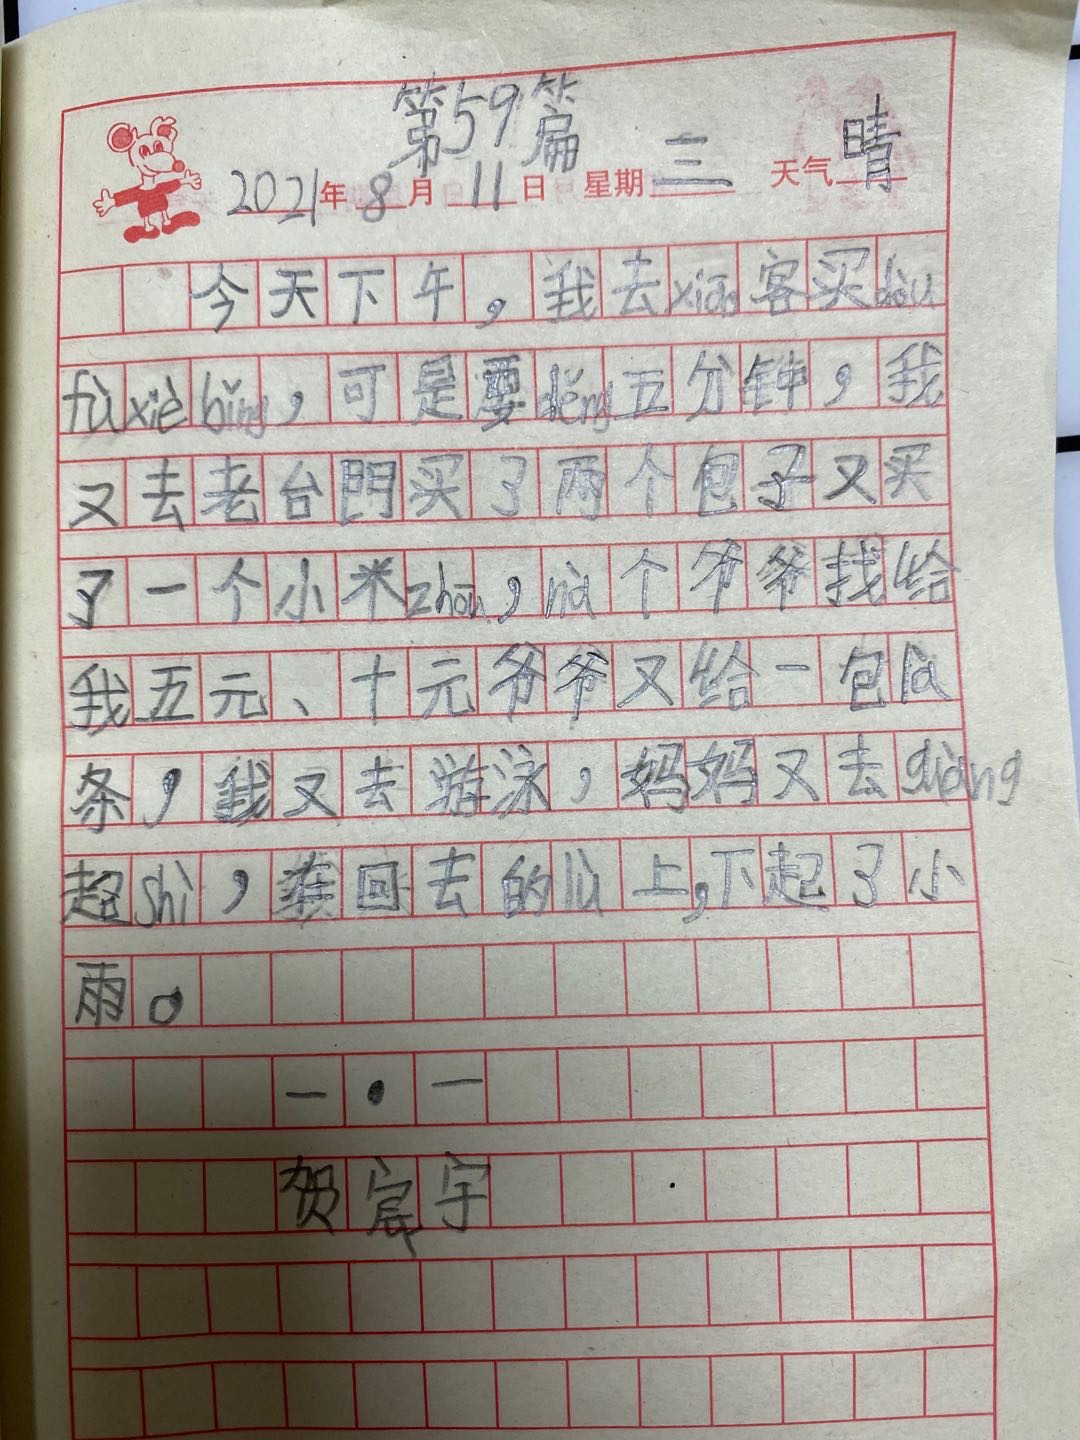 第59篇
2021年8月11日 星期三 天气晴
今天下午，我去xiāo客买dòu
fǔxiè bǐng，可是要děng五分钟，我
又去老台門买了两个包子又买
了一个小米zhōu，nà个爷爷找给
我五元、十元爷爷又给一包là
条，我又去游泳，妈妈又去guàng
超shì，在回去的lù上，下起了小
雨。
一·一
贺宸宇